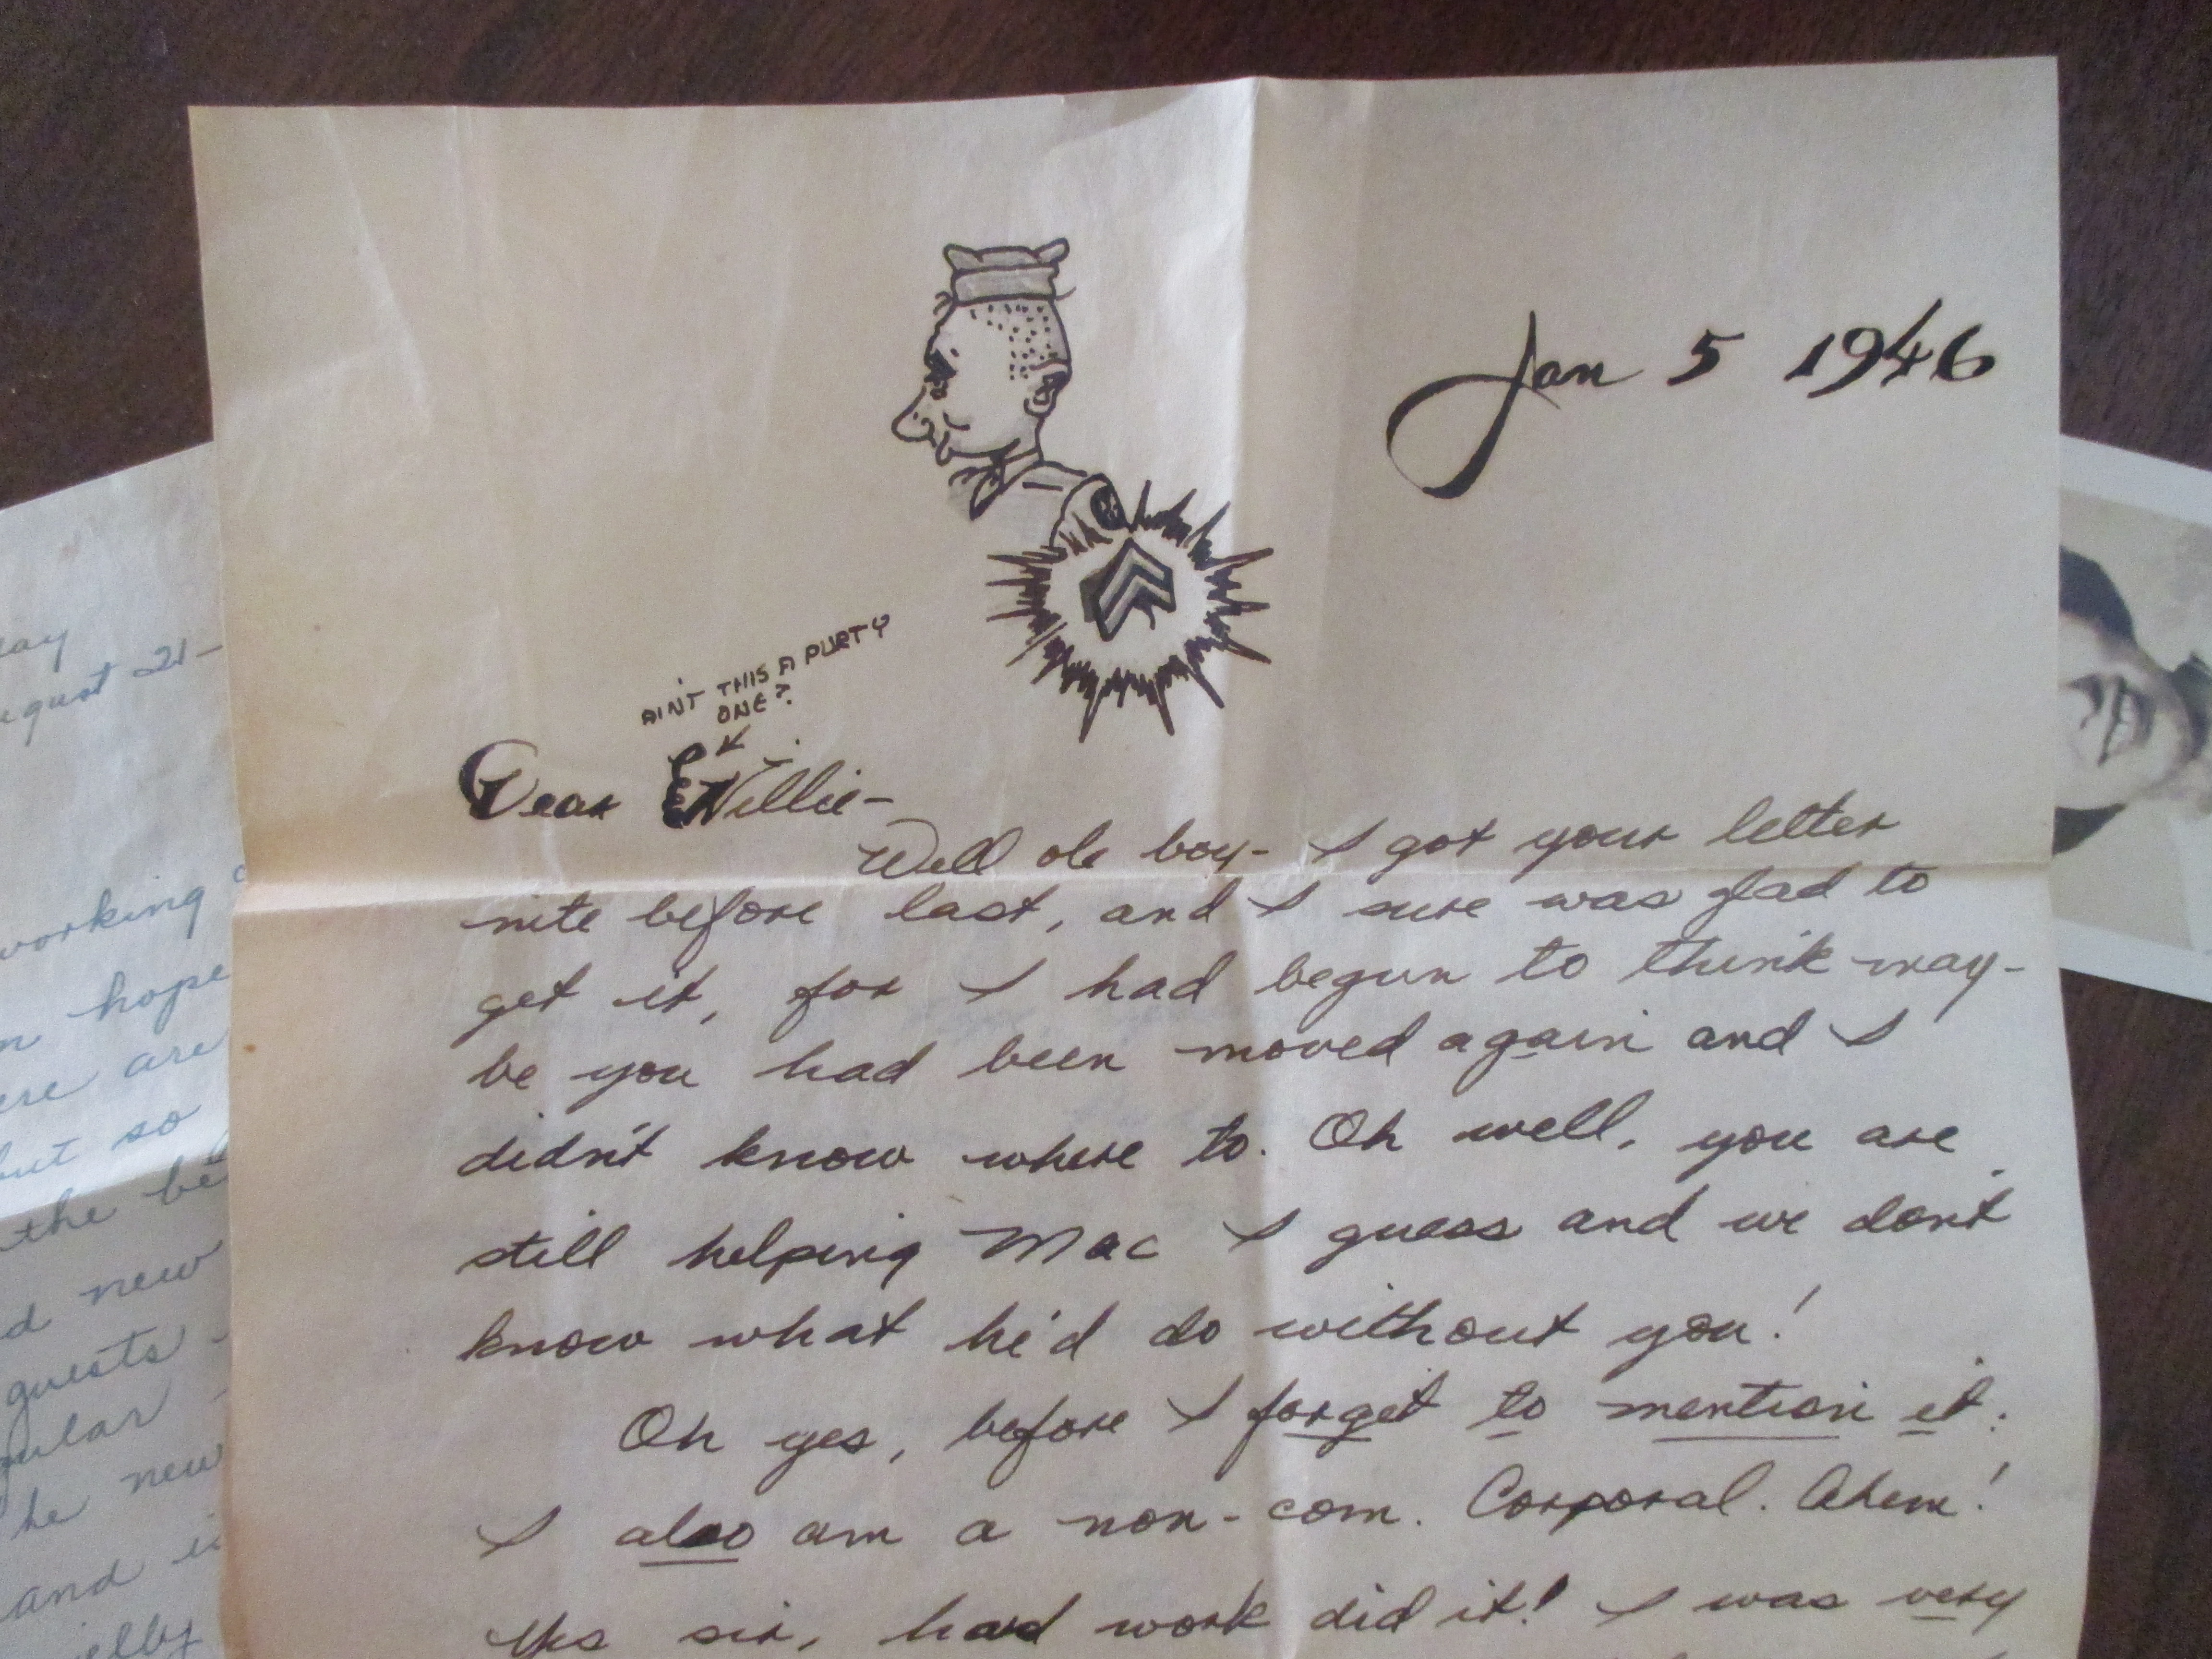 Jan 5 1946
AIN'T THIS A PURTY
ONE?
Dear Willie-
Well ole boy- I got your letter
nite before last, and I sure was glad to
get it, for I had begun to think may-
be you had been moved again and I
didn't know where to. Oh well, you are
still helping Mac I guess and we don't
know what he'd do without you!
Oh yes, before I forget to mention it:
I also am a non-com. Corporal. Ahem!
Yes sir, hard work did it! I was very
August 21-
working
hope
are
but so
the be
new
guests -
he new
and